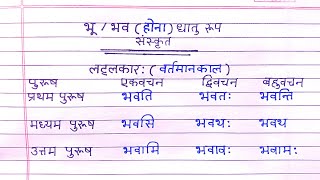 भू / भव ( होना ) धातु रूप
संस्कृत
लट्लकार: ( वर्तमानकाल )
पुरूष एकवचन द्विवचन बहुवचन
प्रथम पुरूष भवति भवतः भवन्ति
मध्यम पुरूष भवसि भवथः भवथ
उत्तम पुरूष भवामि भवावः भवामः